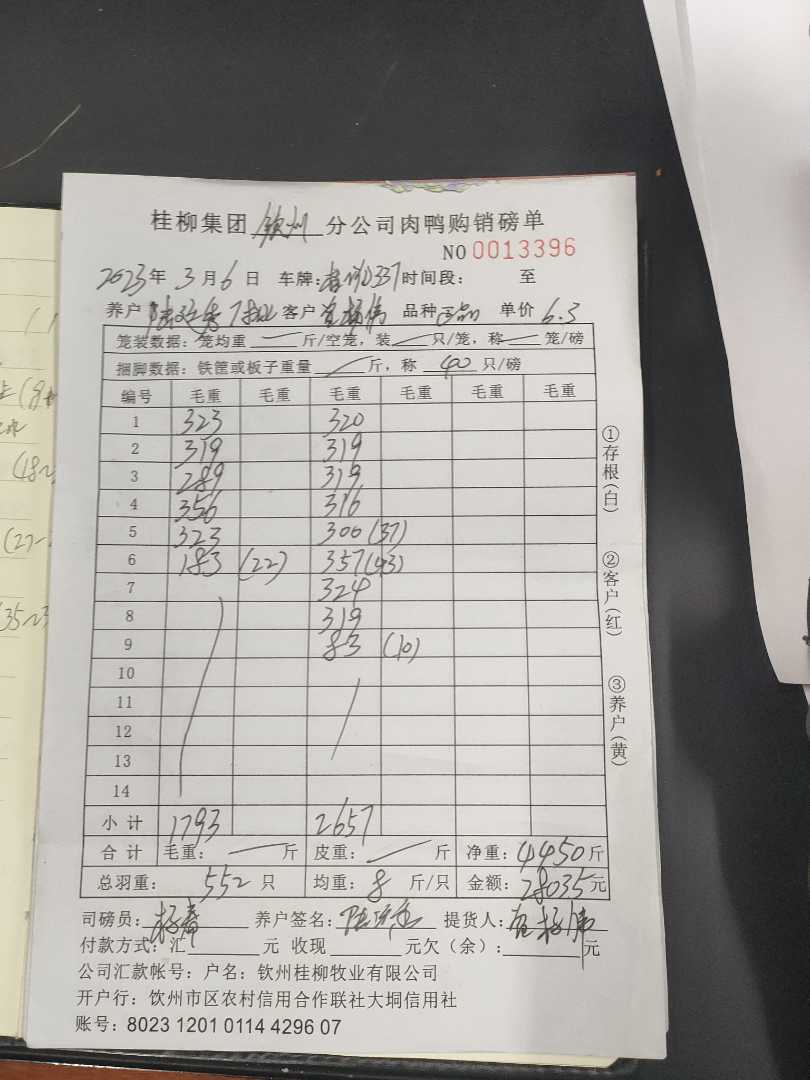 桂柳集团 钦州 分公司肉鸭购销磅单
NO 0013396
2023年 3月6日 车牌: 337 时间段: 至
养户 客户 品种 单价 6.3
笼装数据: 笼均重 斤/空笼, 装 只/笼, 称 笼/磅
捆脚数据: 铁筐或板子重量 斤, 称 40 只/磅
编号 毛重 毛重 毛重 毛重 毛重 毛重
1 323 320
2 319 319
3 289 319
4 356 316
5 323 300 (37)
6 183 (22) 357 (43)
7 324
8 319
9 83 (10)
10
11
12
13
14
小计 1793 2657
合计 毛重: 斤 皮重: 斤 净重: 4450斤
总羽重: 552 只 均重: 8 斤/只 金额: 28035元
司磅员: 养户签名: 提货人:
付款方式: 汇 元 收现 元欠(余): 元
公司汇款帐号: 户名: 钦州桂柳牧业有限公司
开户行: 钦州市区农村信用合作联社大垌信用社
账号: 8023 1201 0114 4296 07
①存根(白)
②客户(红)
③养户(黄)